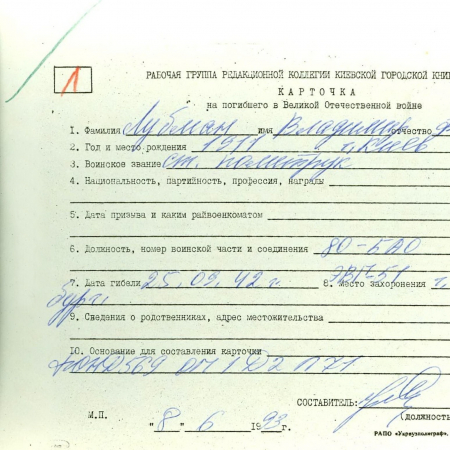 1
РАБОЧАЯ ГРУППА РЕДАКЦИОННОЙ КОЛЛЕГИИ КИЕВСКОЙ ГОРОДСКОЙ КНИ
КАРТОЧКА
на погибшего в Великой Отечественной войне
1. Фамилия Лубман имя Владимир отчество
2. Год и место рождения 1911 г. Киев
3. Воинское звание ст. политрук
4. Национальность, партийность, профессия, награды
5. Дата призыва и каким райвоенкоматом
6. Должность, номер воинской части и соединения 80-БАО
7. Дата гибели 25.09.42 г. 8. Место захоронения г.
бург
9. Сведения о родственниках, адрес местожительства
10. Основание для составления карточки
СОСТАВИТЕЛЬ:
(должность
М.П. "8" 6 1993г.
РАПО «Укрвузполиграф».